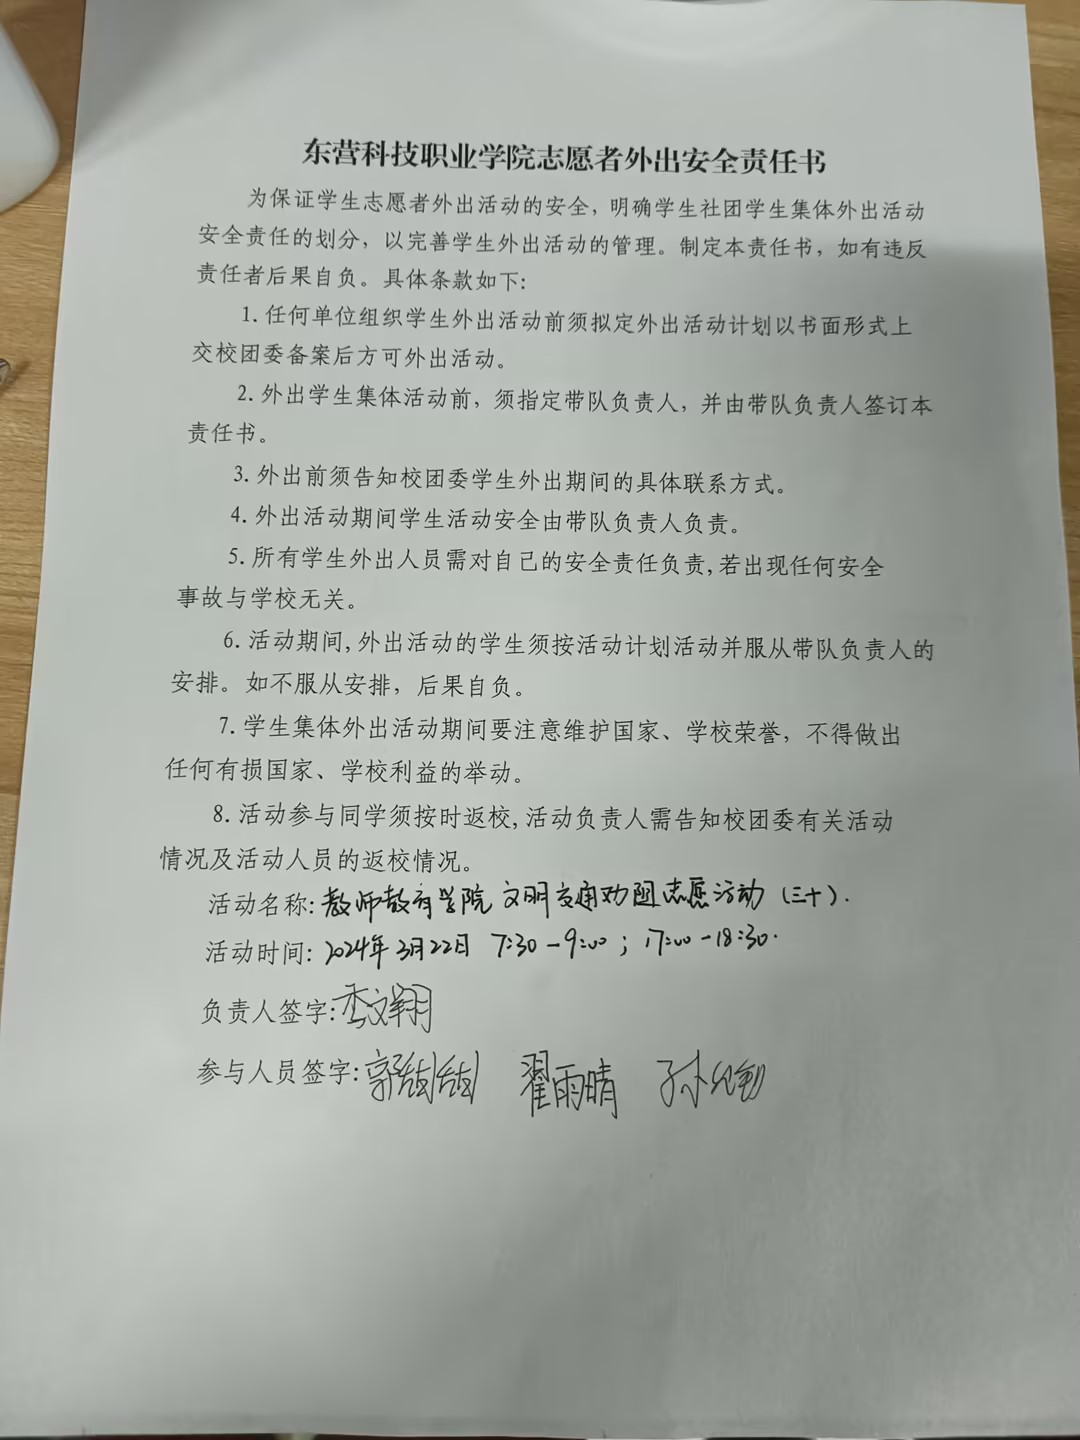 东营科技职业学院志愿者外出安全责任书
为保证学生志愿者外出活动的安全，明确学生社团学生集体外出活动
安全责任的划分，以完善学生外出活动的管理。制定本责任书，如有违反
责任者后果自负。具体条款如下：
1. 任何单位组织学生外出活动前须拟定外出活动计划以书面形式上
交校团委备案后方可外出活动。
2. 外出学生集体活动前，须指定带队负责人，并由带队负责人签订本
责任书。
3. 外出前须告知校团委学生外出期间的具体联系方式。
4. 外出活动期间学生活动安全由带队负责人负责。
5. 所有学生外出人员需对自己的安全责任负责,若出现任何安全
事故与学校无关。
6. 活动期间,外出活动的学生须按活动计划活动并服从带队负责人的
安排。如不服从安排，后果自负。
7. 学生集体外出活动期间要注意维护国家、学校荣誉，不得做出
任何有损国家、学校利益的举动。
8. 活动参与同学须按时返校,活动负责人需告知校团委有关活动
情况及活动人员的返校情况。
活动名称: 教师教育学院 文明交通劝阻志愿活动（三十）.
活动时间: 2024年3月22日 7:30-9:00；17:00-18:30.
负责人签字: 李文翔
参与人员签字: 翟雨晴